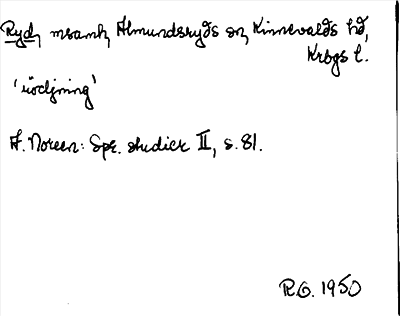 Ryd, msamh, Almundsryds sn, Kinnevalds hd,
Krbgs l.
'rödjning'
A. Noreen: Spr. studier II, s. 81.
R.O. 1950